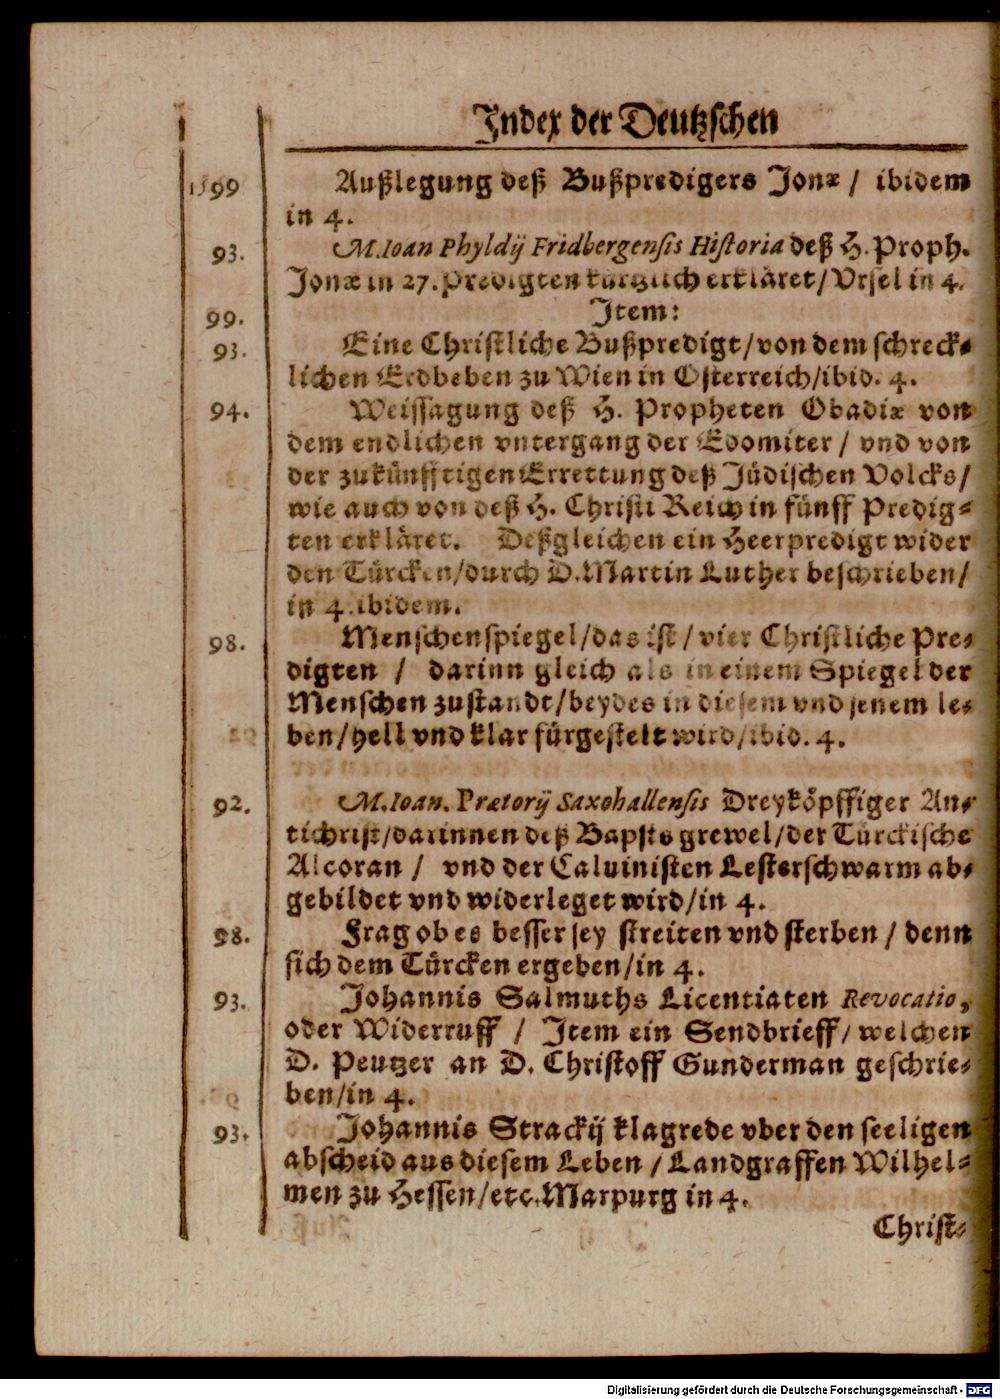 Index der Deutzschen
1599 Außlegung deß Bußpredigers Jonæ / ibidem
in 4.
93. M. Ioan Phyldij Fridbergensis Historia deß H. Proph.
Jonæ in 27. Predigten kürtzlich erkläret / Vrsel in 4.
99. Item:
93. Eine Christliche Bußpredigt / von dem schreck-
lichen Erdbeben zu Wien in Osterreich / ibid. 4.
94. Weissagung deß H. Propheten Obadiæ von
dem endlichen vntergang der Edomiter / vnd von
der zukünfftigen Errettung deß Jüdischen Volcks /
wie auch von deß H. Christi Reich in fünff Predig-
ten erkläret. Deßgleichen ein Heerpredigt wider
den Türcken / durch D. Martin Luther beschrieben /
in 4. ibidem.
98. Menschenspiegel / das ist / vier Christliche Pre-
digten / darinn gleich als in einem Spiegel der
Menschen zustandt / beydes in diesem vnd jenem le-
ben / hell vnd klar fürgestelt wird / ibid. 4.
92. M. Ioan. Prætorij Saxohallensis Dreyköpffiger An-
tichrist / darinnen deß Bapsts grewel / der Türckische
Alcoran / vnd der Caluinisten Lesterschwarm ab-
gebildet vnd widerleget wird / in 4.
98. Frag ob es besser sey streiten vnd sterben / denn
sich dem Türcken ergeben / in 4.
93. Johannis Salmuths Licentiaten Revocatio,
oder Widerruff / Item ein Sendbrieff / welchen
D. Peutzer an D. Christoff Gunderman geschrie-
ben / in 4.
93. Johannis Strackij klagrede vber den seeligen
abscheid aus diesem Leben / Landgraffen Wilhel-
men zu Hessen / etc. Marpurg in 4.
Christ-
Digitalisierung gefördert durch die Deutsche Forschungsgemeinschaft - DFG